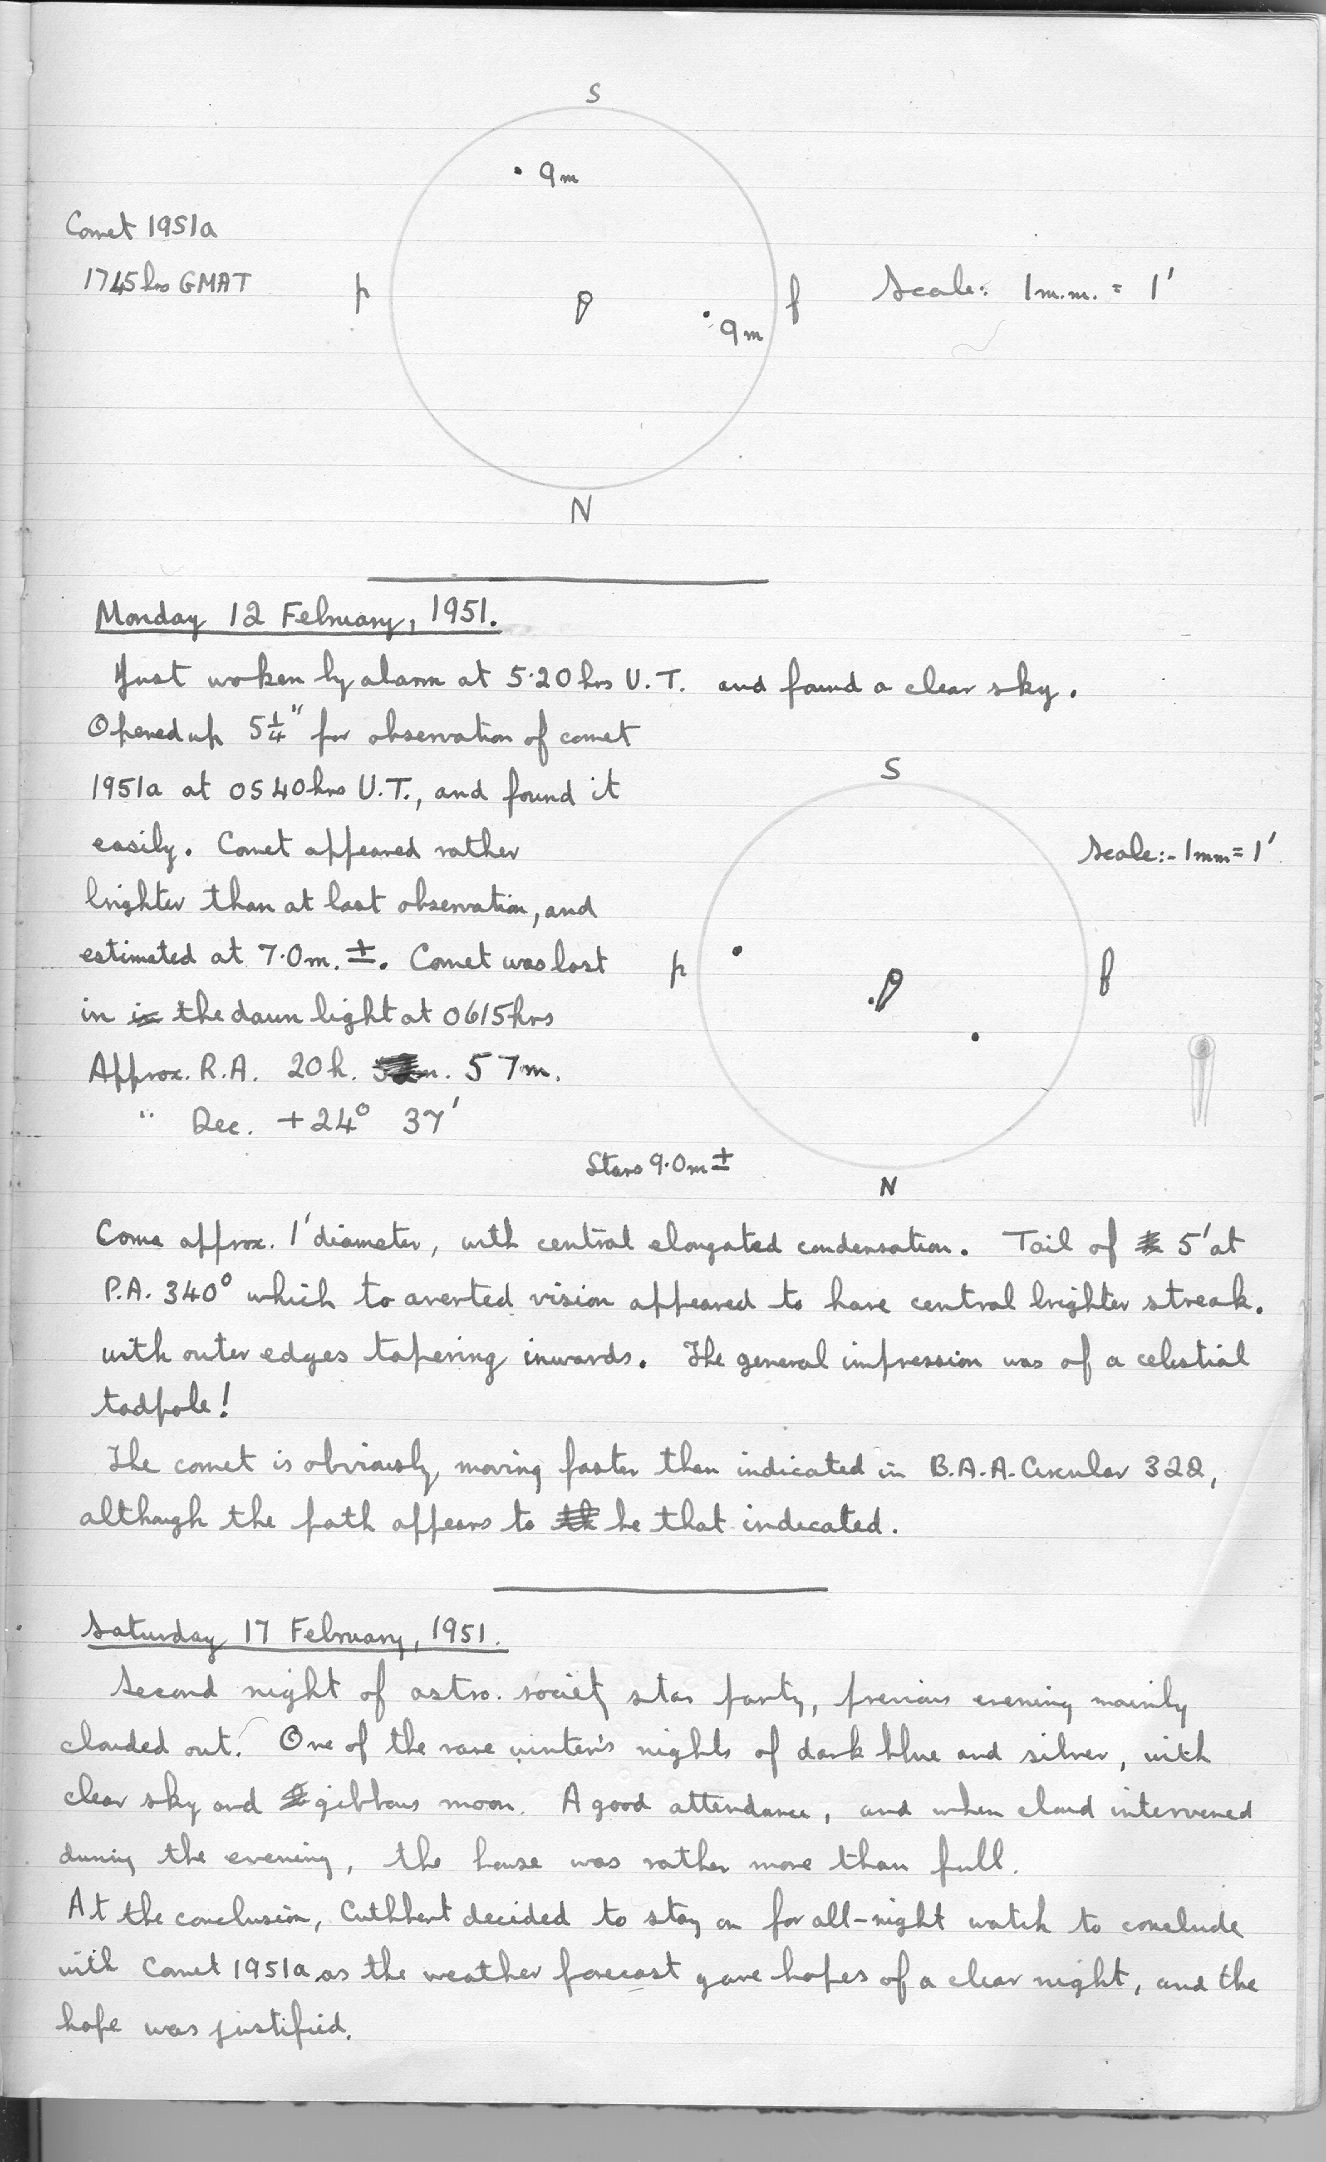 S
9m
Comet 1951a
1745hrs GMAT
p
f
Scale: 1m.m. = 1'
9m
N
Monday 12 February, 1951.
Just woken by alarm at 5.20hrs U.T. and found a clear sky.
Opened up 5¼" for observation of comet
1951a at 0540hrs U.T., and found it
easily. Comet appeared rather
brighter than at last observation, and
estimated at 7.0m. ±. Comet was lost
in the dawn light at 0615hrs
Approx. R.A. 20h. 57m.
" Dec. +24° 37'
S
Scale:- 1mm = 1'
p
f
Stars 9.0m ±
N
Coma approx. 1' diameter, with central elongated condensation. Tail of 5' at
P.A. 340° which to averted vision appeared to have central brighter streak.
with outer edges tapering inwards. The general impression was of a celestial
tadpole!
The comet is obviously moving faster than indicated in B.A.A. Circular 322,
although the path appears to be that indicated.
Saturday 17 February, 1951.
Second night of astro. society star party, previous evening mainly
clouded out. One of the rare winter's nights of dark blue and silver, with
clear sky and gibbous moon. A good attendance, and when cloud intervened
during the evening, the house was rather more than full.
At the conclusion, Cuthbert decided to stay on for all-night watch to conclude
with Comet 1951a, as the weather forecast gave hopes of a clear night, and the
hope was justified.